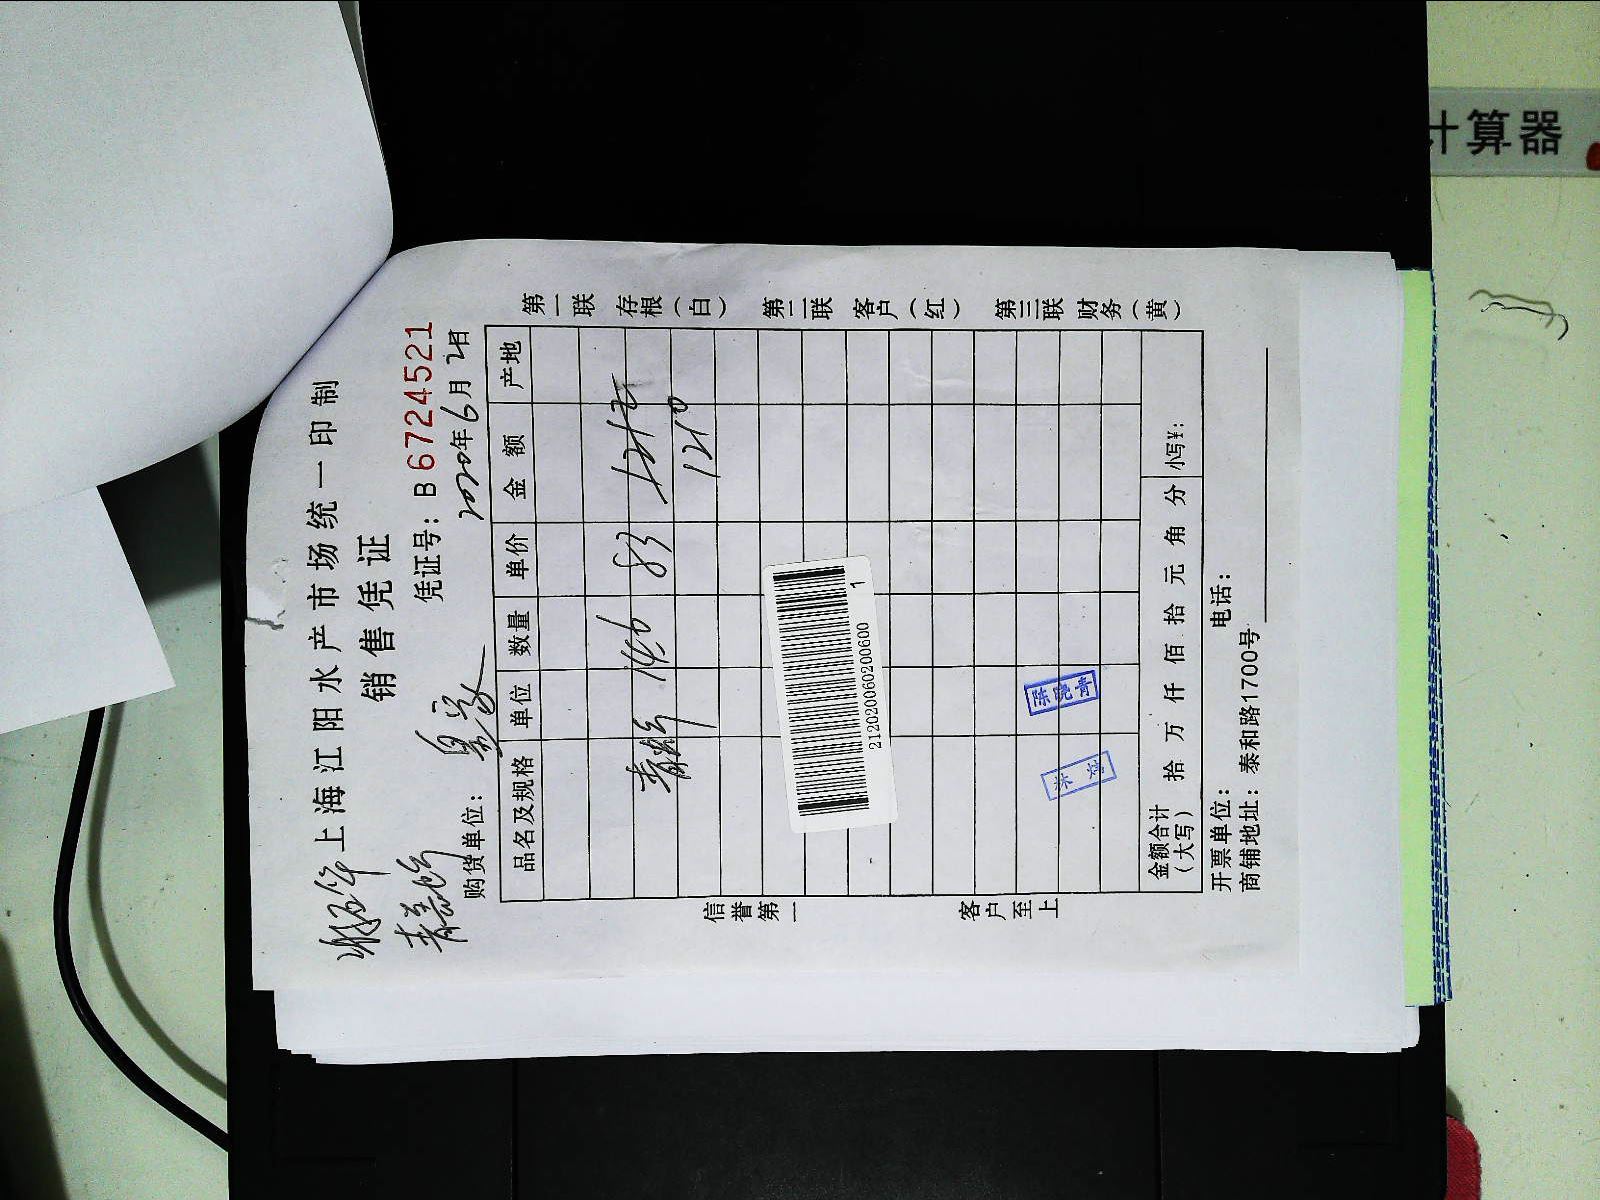 上海江阳水产市场统一印制
销售凭证
凭证号：B 6724521
购货单位： 2020年6月2日
品名及规格 单位 数量 单价 金额 产地
146 83
1210
信誉第一
客户至上
第一联 存根（白） 第二联 客户（红） 第三联 财务（黄）
2120200602006001
金额合计（大写） 拾 万 仟 佰 拾 元 角 分 小写¥：
开票单位： 电话：
商铺地址：泰和路1700号
计算器